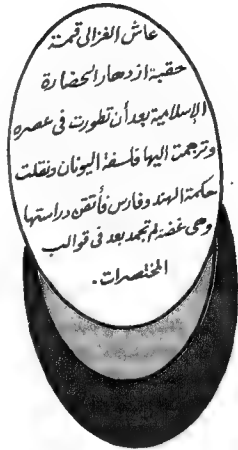 عاش الغزالى قمة
حقبة ازدهار الحضارة
الإسلامية بعد أن تطورت فى عصره
وترجمت إليها فلسفة اليونان ونقلت
حكمة الهند وفارس فأتقن دراستها
وهى غضة لم تجمد بعد فى قوالب
المختصرات.